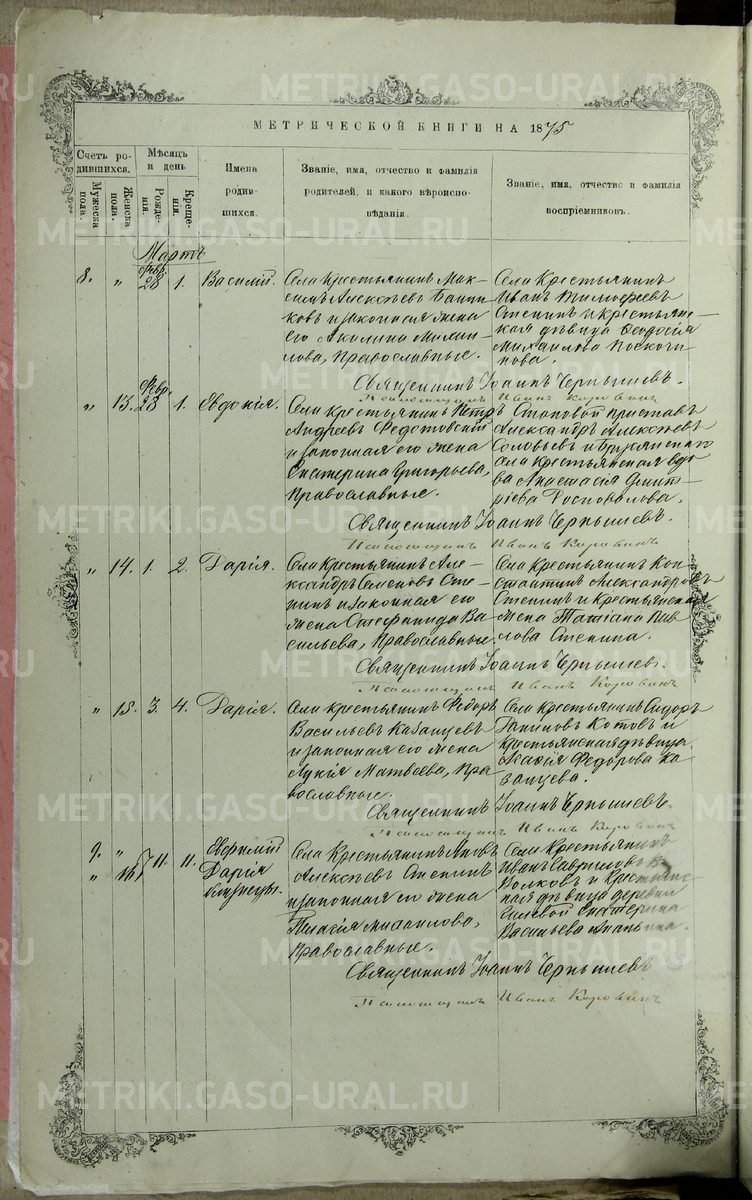 МЕТРИЧЕСКОЙ КНИГИ НА 1875
Счетъ родившихся.
Мужеска пола.
Женска пола.
Мѣсяцъ и день
Рожденія.
Крещенія.
Имена родившихся.
Званіе, имя, отчество и фамилія родителей, и какого вѣроисповѣданія.
Званіе, имя, отчество и фамилія воспріемниковъ.
Мартъ
8. " Февр. 28 1. Василій.
Села Крестьянинъ Мак-
симъ Алексѣевъ
и законная жена
его Акилина Михаи-
лова, Православные.
Села Крестьянинъ
Иванъ Тимофеевъ
Степинъ и крестьянс-
кая дѣвица Ѳеодосія
Михаилова
Священникъ Іоаннъ Чернышевъ.
Иванъ Коровинъ
" 13. Февр. 28 1. Евдокія.
Села крестьянинъ Петръ
Андреевъ Федотовскій
и законная его жена
Екатерина Григорьева,
Православные.
Становой приставъ
Александръ Алексѣевъ
Соловьевъ и
села крестьянская вдо-
ва Анастасія Дмит-
ріева Роспопалова.
Священникъ Іоаннъ Чернышевъ.
Иванъ Коровинъ
" 14. 1. 2. Дарія.
Села Крестьянинъ Але-
ксандръ Семеновъ Сте-
пинъ и законная его
жена Стефанида Ва-
сильева, Православные.
Села Крестьянинъ Кон-
стантинъ Александровъ
Степинъ и крестьянская
жена Татіана Пав-
лова Степина.
Священникъ Іоаннъ Чернышевъ.
Иванъ Коровинъ
" 15. 3. 4. Дарія.
Села крестьянинъ Федоръ
Васильевъ Казанцевъ
и законная его жена
Лукія Матвеева, Пра-
вославные.
Села Крестьянинъ Сидоръ
Котовъ и
крестьянская дѣвица
Федорова Ка-
занцева.
Священникъ Іоаннъ Чернышевъ
Иванъ Коровинъ
9. " Евфимій
" 16 11. 11. Дарія
близнецы.
Села Крестьянинъ Яковъ
Алексѣевъ Степинъ
и законная его жена
Пелагія Михаилова,
Православные.
Села Крестьянинъ
Иванъ Гавриловъ
Волковъ и Крестьянс-
кая дѣвица деревни
Екатерина
Васильева
Священникъ Іоаннъ Чернышевъ
Иванъ Коровинъ
METRIKI.GASO-URAL.RU